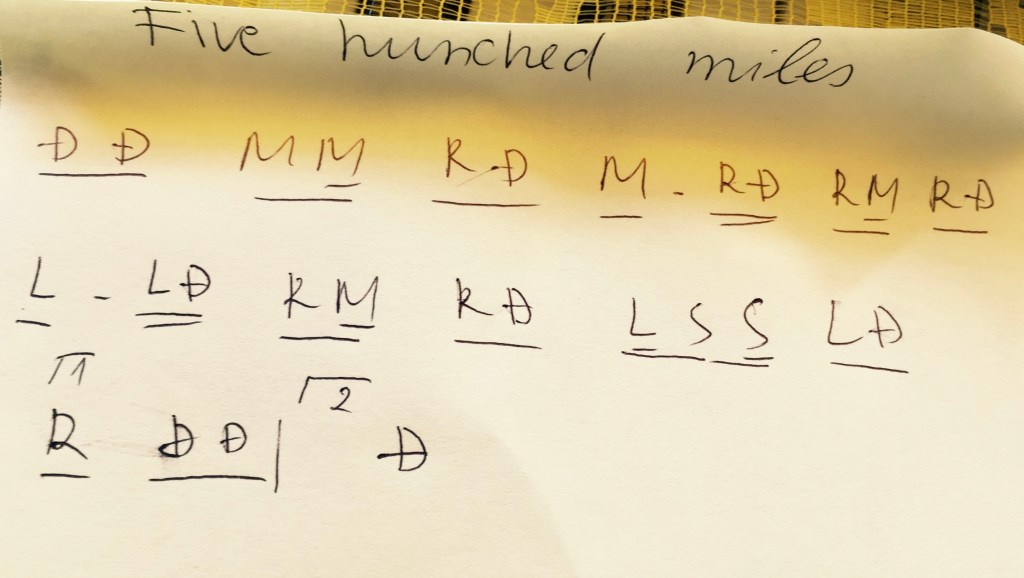 Five hunched miles
Đ Đ M M R Đ M - R Đ R M R Đ
L - L Đ R M R Đ L S S L Đ
1 2
R Đ Đ | Đ